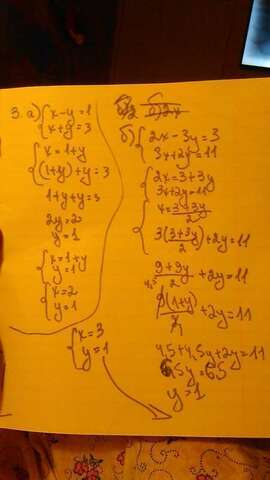 3. а) { x - y = 1
x + y = 3
{ x = 1 + y
(1+y) + y = 3
1 + y + y = 3
2y = 2
y = 1
{ x = 1 + y
y = 1
{ x = 2
y = 1
б) { 2x - 3y = 3
3x + 2y = 11
{ 2x = 3 + 3y
3x + 2y = 11
3+3y
2
3(3+3y/2) + 2y = 11
9+9y/2 + 2y = 11
9(1+y)
+ 2y = 11
4,5 + 4,5y + 2y = 11
y = 1
{ x = 3
y = 1